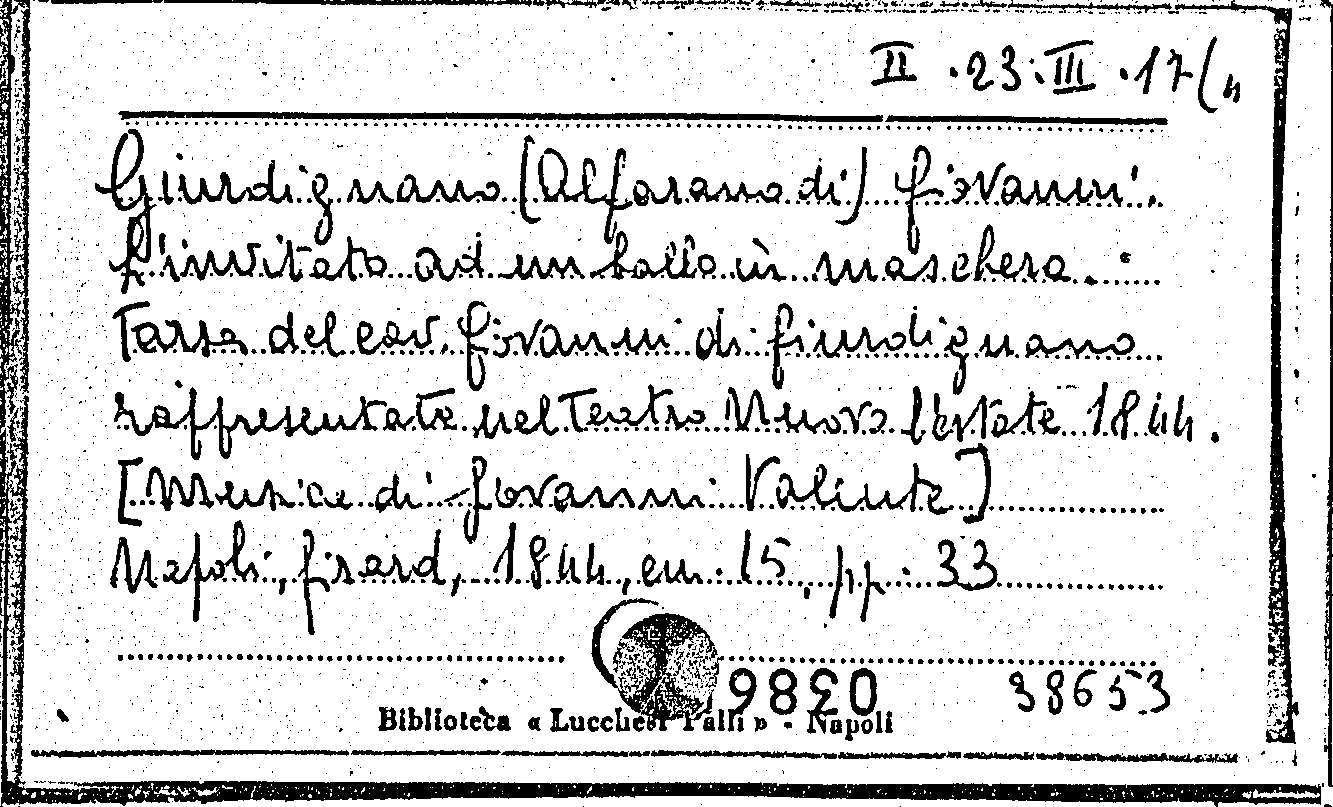 II . 23 . III . 17 (4
Giurdignano (Alfarano di) Giovanni.
L'invitato ad un ballo in maschera. :
Farsa del cav. Giovanni di Giurdignano
rappresentata nel Teatro Nuovo l'estate 1844.
[Musica di Giovanni Valente]
Napoli, Girard, 1844, cm. 15, pp. 33
38653
Biblioteca « Lucchesi Palli » - Napoli